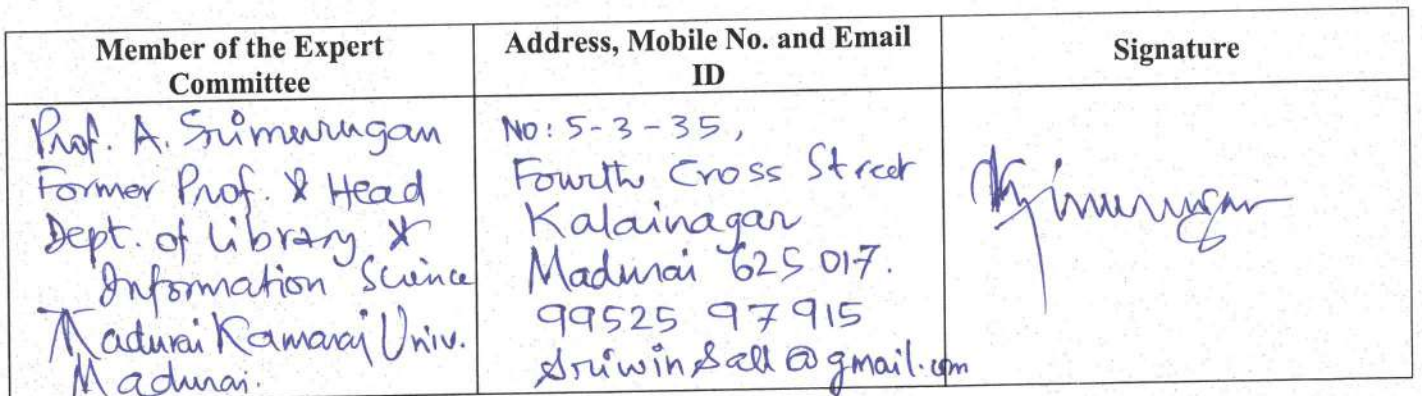 Member of the Expert
Committee
Address, Mobile No. and Email
ID
Signature
Prof. A. Srimurugan
Former Prof. & Head
Dept. of Library &
Information Science
Madurai Kamaraj Univ.
Madurai.
No: 5-3-35,
Fourth Cross Street
Kalainagar
Madurai 625 017.
99525 97915
@gmail.com
Srimurugan